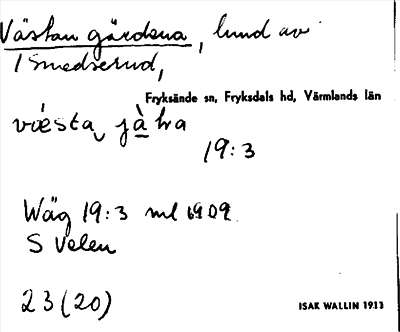 Västan gärdena, lund av
1 Smedserud,
Fryksände sn, Fryksdals hd, Värmlands län
19:3
Wäg 19:3 ml 1909
S Velen
23 (20)
ISAK WALLIN 1933